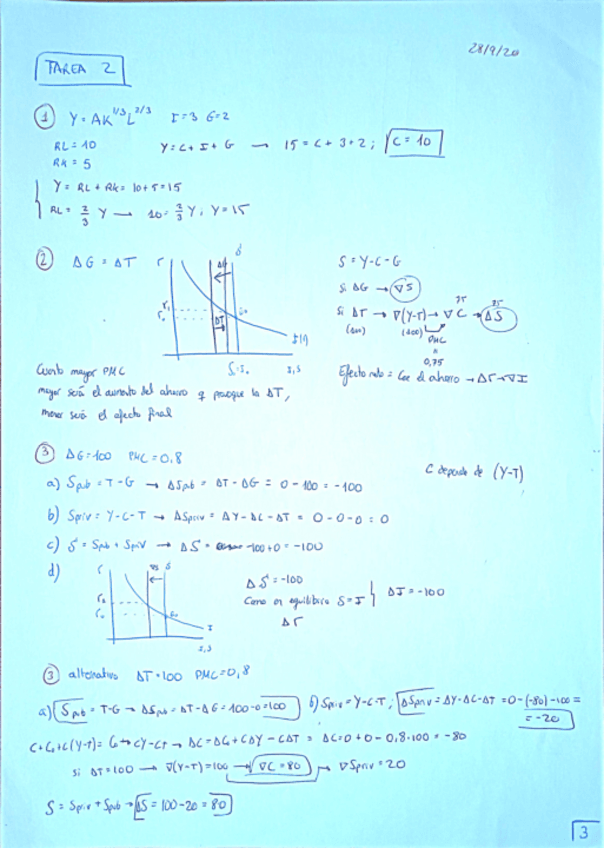 28/9/20
TAREA 2
① Y = AK^1/3 L^2/3 I=3 G=2
RL = 10 Y = C + I + G → 15 = C + 3 + 2 ; C = 10
RK = 5
Y = RL + RK = 10 + 5 = 15
RL = 2/3 Y → 10 = 2/3 Y ; Y = 15
② ΔG = ΔT
r
S = Y - C - G
Si ΔG → ∇S
Si ΔT → ∇(Y-T) → ∇C → ΔS
(100) (100) 75
PMC
0,75
S, I
Cuanto mayor PMC
mayor será el aumento del ahorro q provoque la ΔT,
menor será el efecto final
Efecto neto = Cae el ahorro → Δr → ∇I
③ ΔG = 100 PMC = 0,8
C depende de (Y-T)
a) Spub = T - G → ΔSpub = ΔT - ΔG = 0 - 100 = -100
b) Spriv = Y - C - T → ΔSpriv = ΔY - ΔC - ΔT = 0 - 0 - 0 = 0
c) S = Spub + Spriv → ΔS = -100 + 0 = -100
d)
r
I
S, I
ΔS = -100
Como en equilibrio S = I } ΔI = -100
Δr
③ alternativo ΔT = 100 PMC = 0,8
a) Spub = T - G → ΔSpub = ΔT - ΔG = 100 - 0 = 100 b) Spriv = Y - C - T ; ΔSpriv = ΔY - ΔC - ΔT = 0 - (-80) - 100 =
= -20
ΔC = 0 + 0 - 0,8·100 = -80
Si ΔT = 100 → ∇(Y-T) = 100 → ∇C = 80 → ∇Spriv = 20
S = Spriv + Spub → ΔS = 100 - 20 = 80
3